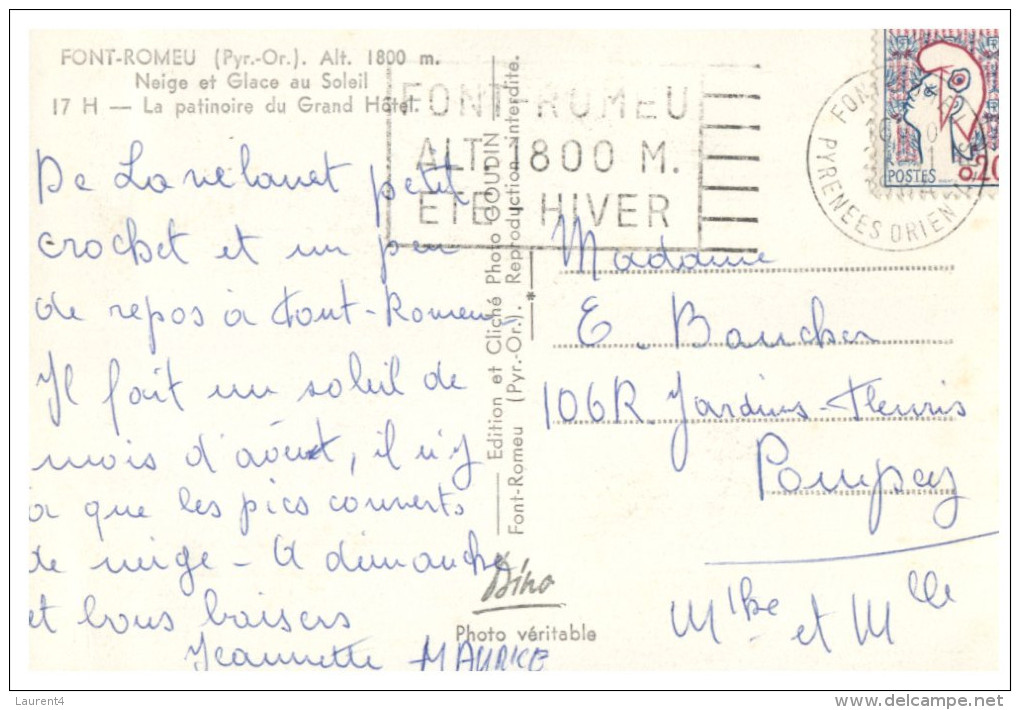 FONT-ROMEU (Pyr.-Or.). Alt. 1800 m.
Neige et Glace au Soleil
17 H — La patinoire du Grand Hôtel.
FONT-ROMEU
ALT. 1800 M.
ETE - HIVER
POSTES 0.20
PYRENEES ORIEN
De Lavelanet petit
crochet et un peu
de repos à Font-Romeu
Il fait un soleil de
mois d'août, il n'y
a que les pics couverts
de neige - A dimanche
et bons baisers
Jeannette MAURICE
Edition et Cliché Photo GOUDIN
Font-Romeu (Pyr.-Or.). Reproduction interdite.
*
Dino
Photo véritable
Madame
E. Baucher
106R Jardins-Fleuris
Pompey
Mthe et Mlle
Laurent4
www.delcampe.net